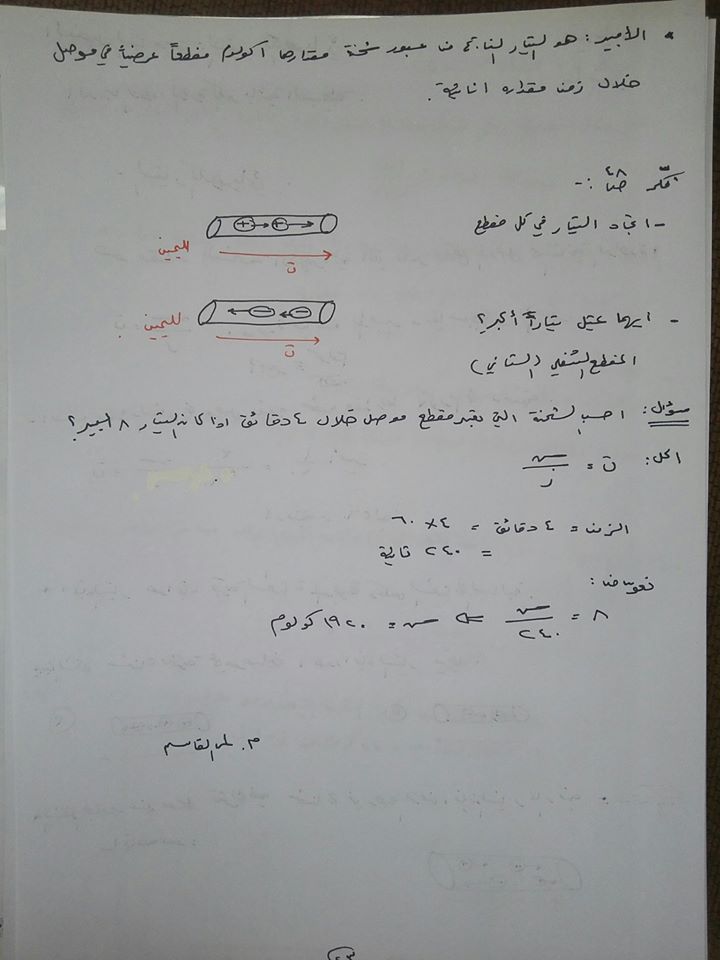 • الأمبير: هو التيار الناتج من عبور شحنة مقدارها ١ كولوم مقطعاً عرضياً في موصل
خلال زمن مقداره ١ ثانية.
أفكر ص٤٨ :-
- اتجاه التيار في كل مقطع
+ +
لليمين
ت
- ايهما يمثل تياراً أكبر؟
- -
لليمين
ت
المقطع السفلي (الثاني)
سؤال: احسب الشحنة التي تعبر مقطع موصل خلال ٤ دقائق اذا كان التيار ٨ امبير؟
الحل: ت = سـ / ز
الزمن = ٤ دقائق = ٤ × ٦٠
= ٢٤٠ ثانية
نعوض:
٨ = سـ / ٢٤٠ ⇐ سـ = ١٩٢٠ كولوم
م. لمى القاسم